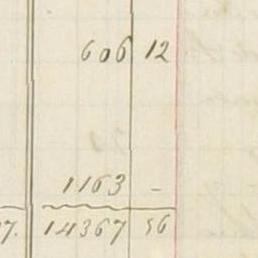 606 12
1163 -
7. 14367 56